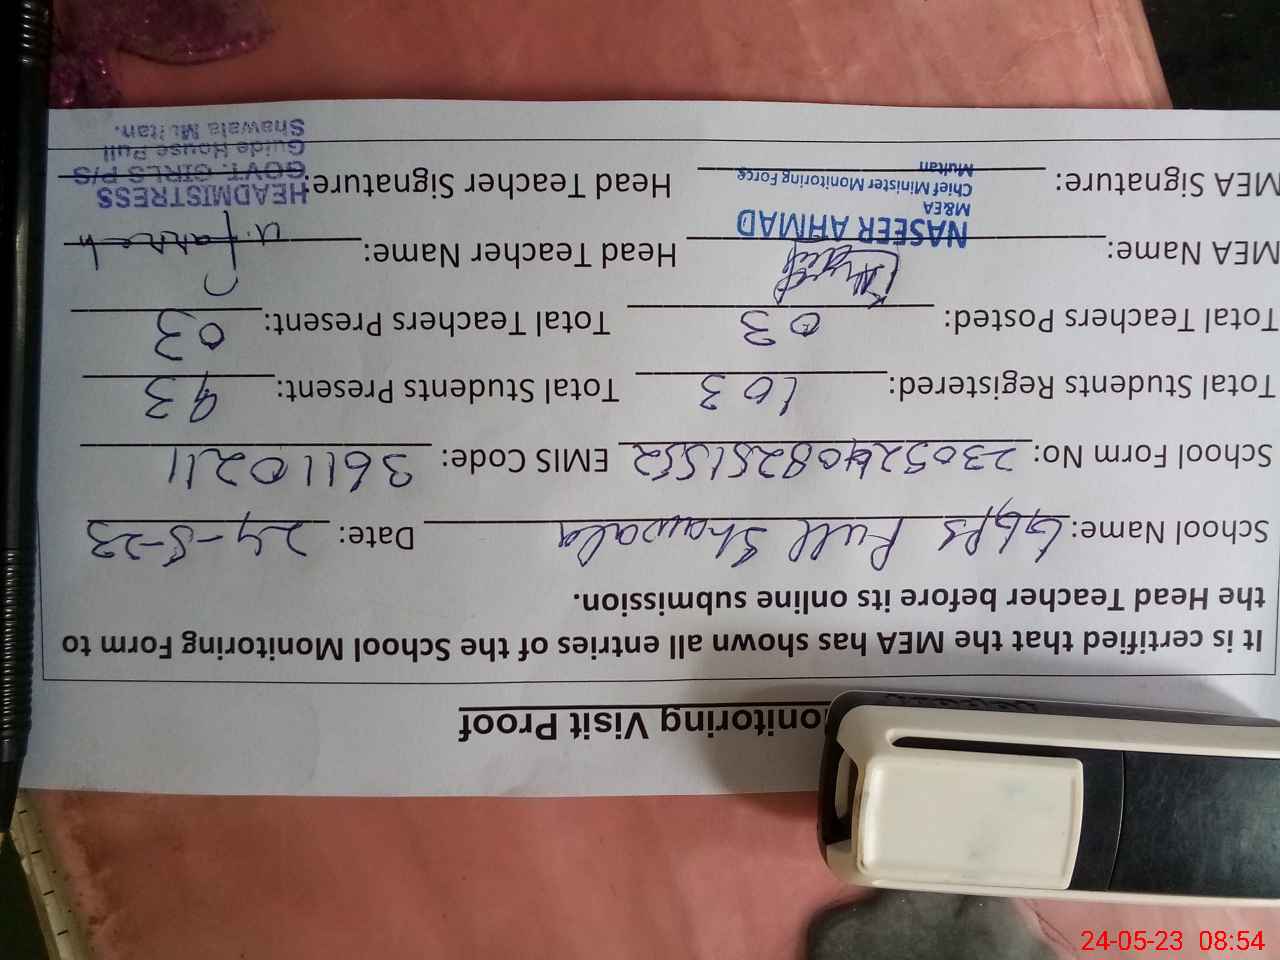 onitoring Visit Proof
It is certified that the MEA has shown all entries of the School Monitoring Form to
the Head Teacher before its online submission.
School Name: GGPS Pull Shawala Date: 24-5-23
School Form No: EMIS Code: 36110211
Total Students Registered: 103 Total Students Present: 93
Total Teachers Posted: 03 Total Teachers Present: 03
MEA Name: Head Teacher Name:
NASEER AHMAD
M&EA
Chief Minister Monitoring Force
Multan
MEA Signature: Head Teacher Signature:
HEADMISTRESS
GOVT. GIRLS P/S
Guide House Pull
Shawala Multan.
24-05-23 08:54